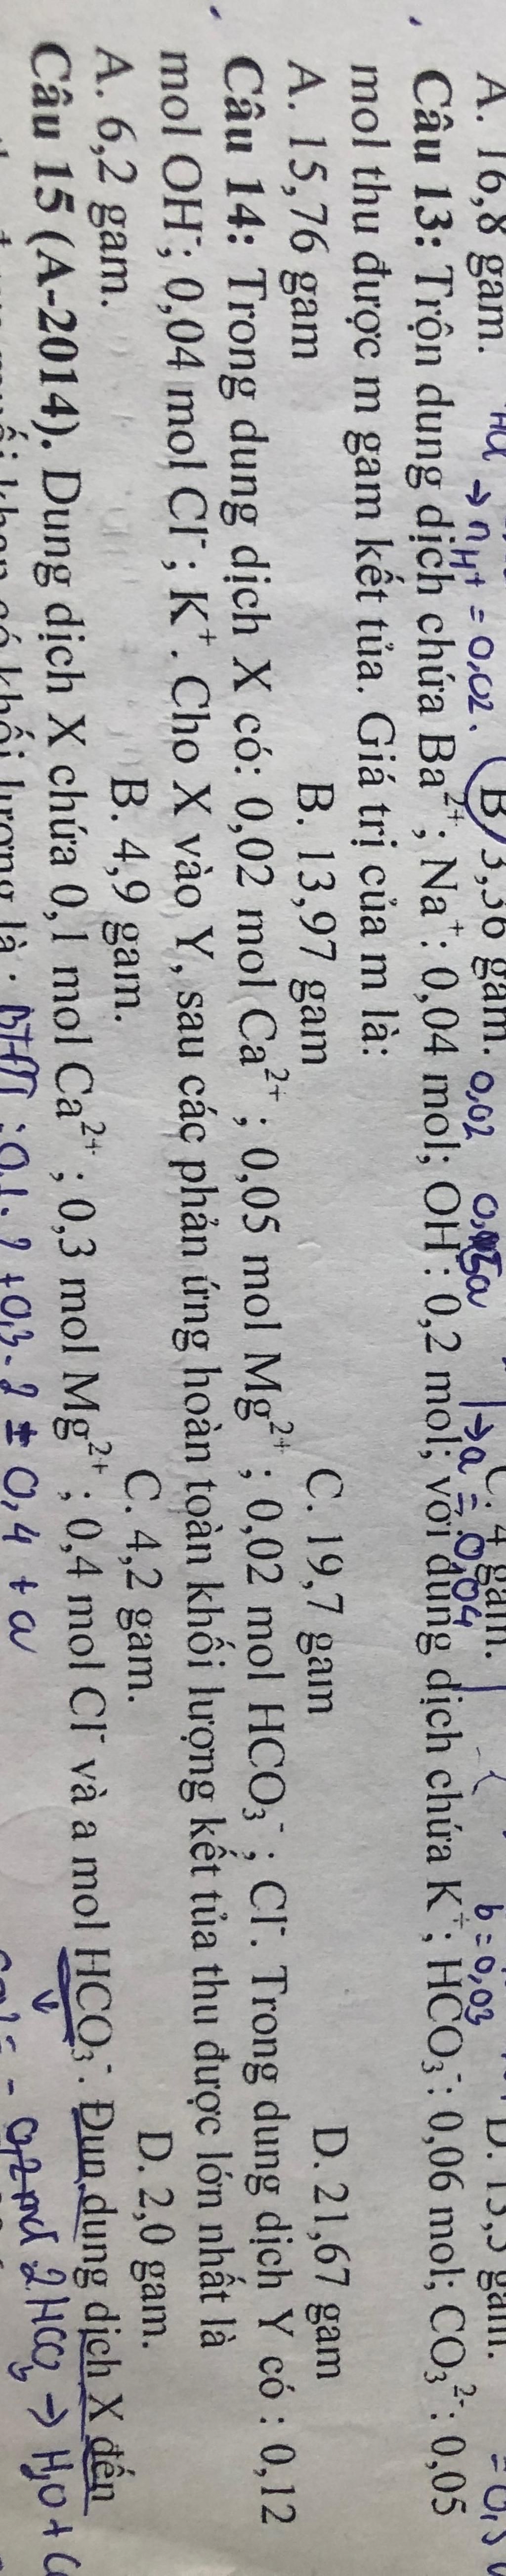 A. 16,8 gam. B. 3,36 gam. C. 4 gam. D. 13,5 gam.
HCl → nH⁺ = 0,02. 0,02 → a = 0,04 b = 0,03
Câu 13: Trộn dung dịch chứa Ba²⁺; Na⁺: 0,04 mol; OH⁻: 0,2 mol; với dung dịch chứa K⁺; HCO₃⁻: 0,06 mol; CO₃²⁻: 0,05
mol thu được m gam kết tủa. Giá trị của m là:
A. 15,76 gam B. 13,97 gam C. 19,7 gam D. 21,67 gam
Câu 14: Trong dung dịch X có: 0,02 mol Ca²⁺; 0,05 mol Mg²⁺; 0,02 mol HCO₃⁻; Cl⁻. Trong dung dịch Y có : 0,12
mol OH⁻; 0,04 mol Cl⁻; K⁺. Cho X vào Y, sau các phản ứng hoàn toàn khối lượng kết tủa thu được lớn nhất là
A. 6,2 gam. B. 4,9 gam. C. 4,2 gam. D. 2,0 gam.
Câu 15 (A-2014). Dung dịch X chứa 0,1 mol Ca²⁺; 0,3 mol Mg²⁺; 0,4 mol Cl⁻ và a mol HCO₃⁻. Đun dung dịch X đến
khối lượng là : BTĐT : 0,1.2 + 0,3.2 = 0,4 + a 2HCO₃ → H₂O +